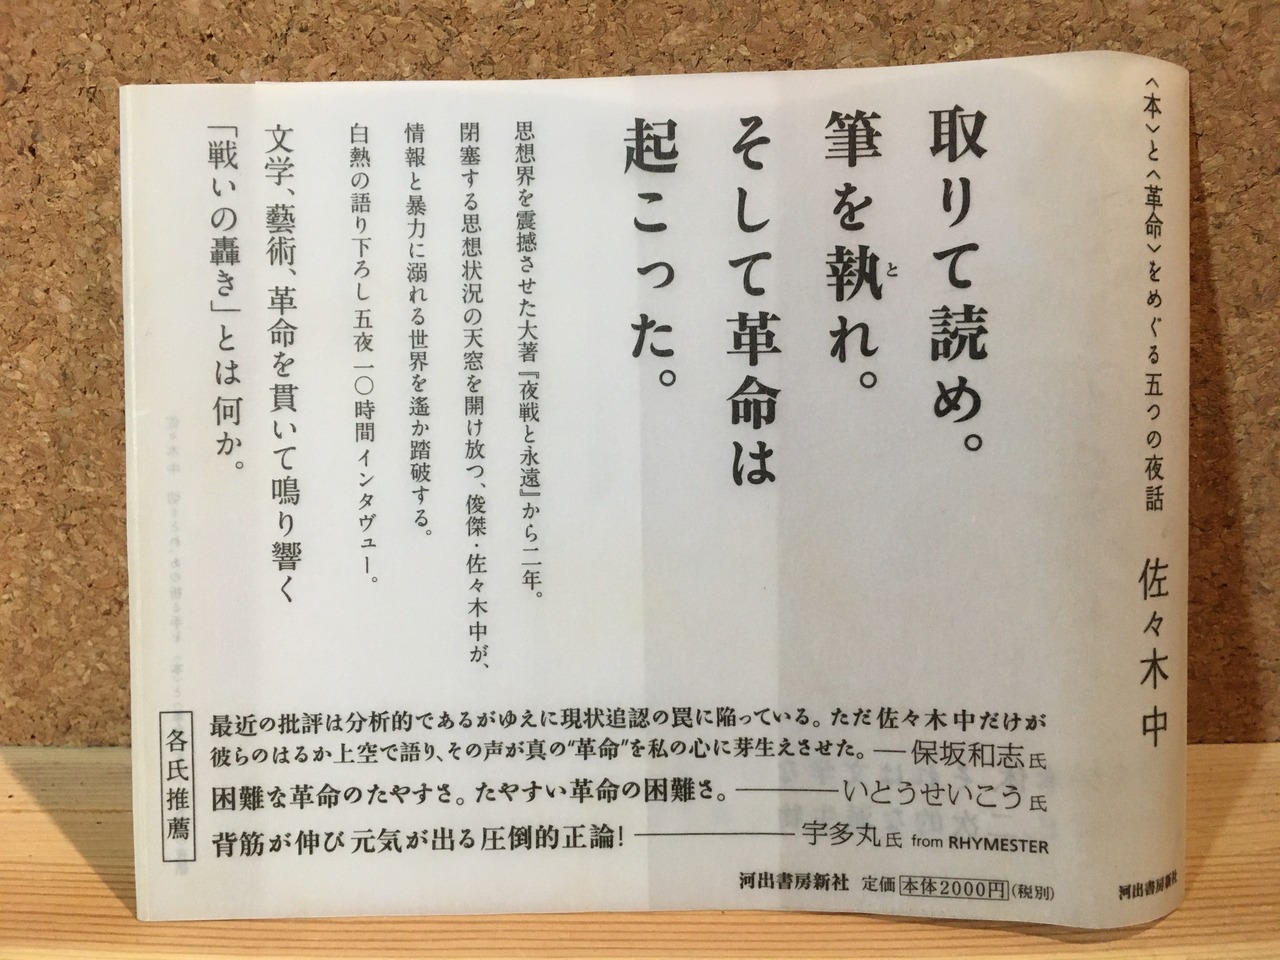 〈本〉と〈革命〉をめぐる五つの夜話 佐々木中
河出書房新社
取りて読め。
筆を執れ。
と
そして革命は
起こった。
思想界を震撼させた大著『夜戦と永遠』から二年。
閉塞する思想状況の天窓を開け放つ、俊傑・佐々木中が、
情報と暴力に溺れる世界を遙か踏破する。
白熱の語り下ろし五夜一〇時間インタヴュー。
文学、藝術、革命を貫いて鳴り響く
「戦いの轟き」とは何か。
各氏推薦
最近の批評は分析的であるがゆえに現状追認の罠に陥っている。ただ佐々木中だけが
彼らのはるか上空で語り、その声が真の“革命”を私の心に芽生えさせた。——保坂和志氏
困難な革命のたやすさ。たやすい革命の困難さ。——いとうせいこう氏
背筋が伸び元気が出る圧倒的正論!——宇多丸氏 from RHYMESTER
河出書房新社 定価 本体2000円(税別)